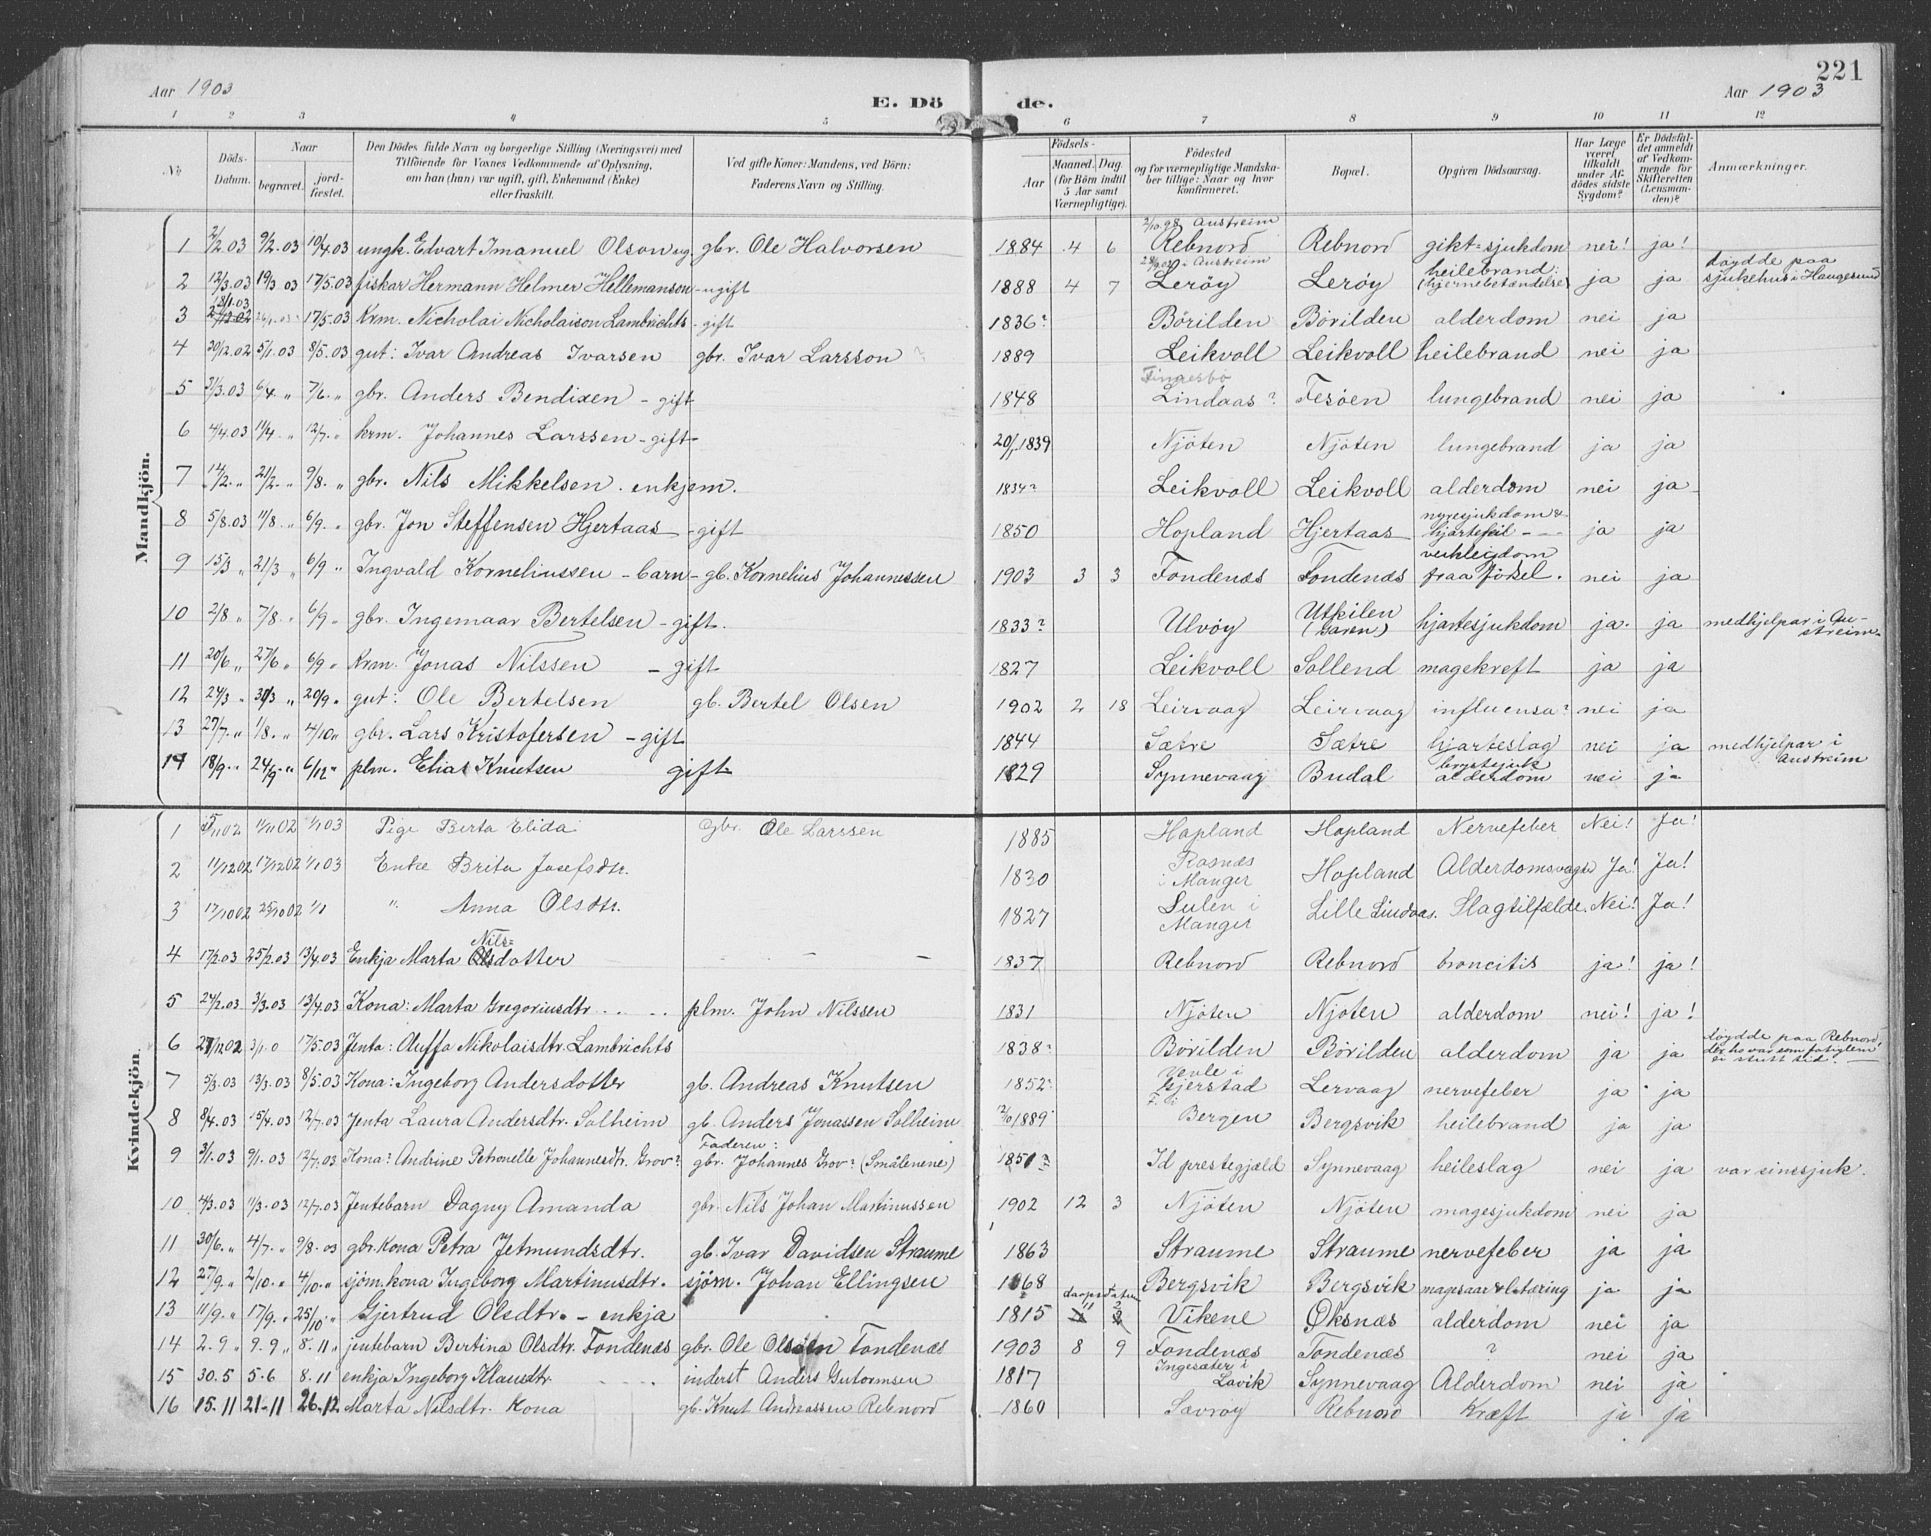 221
Aar 1903
E. Dö de.
Aar 1903
1 2 3 4 5 6 7 8 9 10 11 12
No
Döds-Datum.
Naar
begravet.
jord-fæstet.
Den Dödes fulde Navn og borgerlige Stilling (Næringsvei) med
Tilföiende for Voxnes Vedkommende af Oplysning,
om han (hun) var ugift, gift, Enkemand (Enke)
eller fraskilt.
Ved gifte Koner: Mandens, ved Börn:
Faderens Navn og Stilling.
Födsels-
Aar
Maaned. Dag
(for Börn indtil
5 Aar samt
Værnepligtige).
Födested
og for værnepligtige Mandska-
ber tillige: Naar og hvor
konfirmeret.
Bopæl.
Opgiven Dödsaarsag.
Har Læge
været
tilkaldt
under Af-
dödes sidste
Sygdom?
Er Dödsfal-
det anmeldt
af Vedkom-
mende for
Skifteretten
(Lensman-
den)?
Anmærkninger.
Mandkjön.
1 2/2 03 9/2.03 10/4 03 ungk. Edvart Imanuel Olson ug gbr. Ole Halvorsen 1884 4 6 2/10 98 Austreim Rebnord Rebnord gikt-sjukdom nei! ja!
2 12/3.03 19/3 03 17/5.03 fiskar Hermann Helmer Hellemansen - ugift 1888 4 7 i Austreim Lerøy Lerøy heilebrand: (hjernebetændelse) ja ja døydde paa sjukehus i Haugesund
3 18/1.03 17/5.03 Krm. Nicholai Nicholaison Lambrichts - gift 1836? Börilden Börilden alderdom nei ja
4 20/12.02 5/1.03 8/5.03 gut: Ivar Andreas Ivarsen gbr. Ivar Larsson ? 1889 Leikvoll Leikvoll heilebrand nei ja
5 31/3.03 6/4 " 7/6. " gbr. Anders Bendixen - gift 1848 Lindaas? Fesøen lungebrand nei ja
6 4/4.03 11/4 " 12/7. " krm. Johannes Larssen - gift- 20/1 1839 Njöten Njöten lungebrand ja ja
7 14/2. " 21/2. " 9/8. " gbr. Nils Mikkelsen. enkjem. 1834? Leikvoll Leikvoll alderdom nei ja
8 5/8.03 11/8. " 6/9. " gbr. Jon Steffensen Hjertaas - gift 1850 Hopland Hjertaas nyresjukdom & hjartefeil ja ja
9 15/3 " 21/3 " 6/9 " Ingvald Korneliussen - barn - gb. Kornelius Johannessen 1903 3 3 Fondenæs Fondenæs veikleigdom fraa fødsel. nei ja
10 2/8 " 7/8. " 6/9 " gbr. Ingemaar Bertelsen - gift. 1833? Ulvöy Utkilen (Garen) hjartesjukdom ja. ja medhjelpar i Au-streim.
11 20/6 " 27/6 " 6/9 " Krm. Jonas Nilssen - gift 1827 Leikvoll Sollend magekreft ja ja
12 24/3 " 30/3 " 20/9 " gut: Ole Bertelsen gb. Bertel Olsen 1902 2 18 Leirvaag Leirvaag influensa? nei ja
13 27/7. " 1/8. " 4/10 " gbr. Lars Kristofersen - gift 1844 Sætre Sætre hjarteslag nei ja medhjelpar i Austreim
14 18/9. " 24/9. " 6/12 " plm. Elias Knutsen gift 1829 Synnevaag Budal brystsjuk alderdom nei ja
Kvindekjön.
1 5/11 02 11/11 02 1/1 03 Pige Berta Elida Gbr. Ole Larssen 1885 Hopland Hopland Nervefeber Nei! Ja!
2 11/12 02 17/12 02 1/1 03 Enke Brita Josefsdtr. 1830 Rosnæs i Manger Hopland Ja! Ja!
3 17/10 02 25/10 02 1/1 " Anna Olsdtr. 1827 Sulen i Manger Lille Lindaas. Slagtilfælde. Nei! Ja!
4 17/2.03 25/2.03 13/4.03 Enkja Marta Nils-dotter - - - 1837 Rebnord Rebnord broncitis ja! ja!
5 24/2.03 3/3.03 13/4.03 Kona: Marta Gregoriusdtr. . . . plm. John Nilssen 1831 Njøten Njøten alderdom nei! ja!
6 27/12 02 3/1.0 17/5.03 Jenta: Oluffa Nikolaisdtr. Lambrichts 1838? Börilden Börilden alderdom ja ja døydde paa Rebnord, der ho var som fatiglem ei stutt tid.
7 5/3.03 13/3.03 8/5.03 Kona: Ingeborg Andersdotter gb. Andreas Knutsen 1852? i Gjerstad Lervaag nervefeber ja ja
8 8/4.03 15/4.03 12/7.03 Jenta Laura Andersdtr. Solheim gb. Anders Jonassen Solheim 1889 F. i Bergen Bergsvik heilebrand ja ja
9 3/1.03 9/1.03 12/7.03 Kona? Andrine Petronelle Johannesdtr. Grov? Faderen: gbr. Johannes Grov? (Smålenene) 1851? Id prestegjæld Synnevaag heileslag nei ja var sinssjuk.
10 4/3.03 11/3.03 12/7.03 Jentebarn Dagny Amanda gbr. Nils Johan Martinussen 1902 12 3 Njöten Njöten magesjukdom nei ja
11 30/6. " 4/7. " 9/8. 03 gbr.kona Petra Jetmundsdtr. gb. Ivar Davidsen Straume 1863 Straume Straume nervefeber ja ja
12 27/9. " 2/10. " 4/10. " sjöm.kona Ingeborg Martinusdtr. sjöm. Johan Ellingsen 1868 Bergsvik Bergsvik magesaar & ja ja
13 11/9. " 17/9. " 25/10 " Gjertrud Olsdtr. - enkja 1815 Vikene Øksnæs alderdom nei ja
14 2.9 " 9.9 " 8.11 " jentebarn Bertina Olsdtr. Fondenæs gbr. Ole Olsen Fondenæs 1903 8 9 Fondenæs Fondenæs ? nei ja
15 30.5 5.6 8.11 enkja Ingeborg Klausdtr. . . . . inderst Anders Gutormsen 1817 Ingesæter i Lavik Synnevaag Alderdom nei ja
16 15.11 21-11 26.12 Marta Nilsdtr. Kona gb. Knut Andreassen Rebnord 1860 Sævröy Rebnord Kræft ja ja